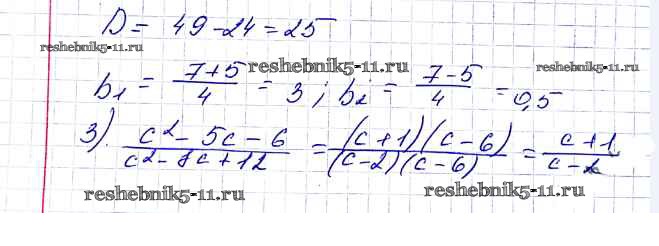 D = 49 - 24 = 25
reshebnik5-11.ru
reshebnik5-11.ru
reshebnik5-11.ru
b₁ = (7+5)/4 = 3 ; b₂ = (7-5)/4 = 0,5
3). (c² - 5c - 6)/(c² - 8c + 12) = ((c+1)(c-6))/((c-2)(c-6)) = (c+1)/(c-2)
reshebnik5-11.ru
reshebnik5-11.ru